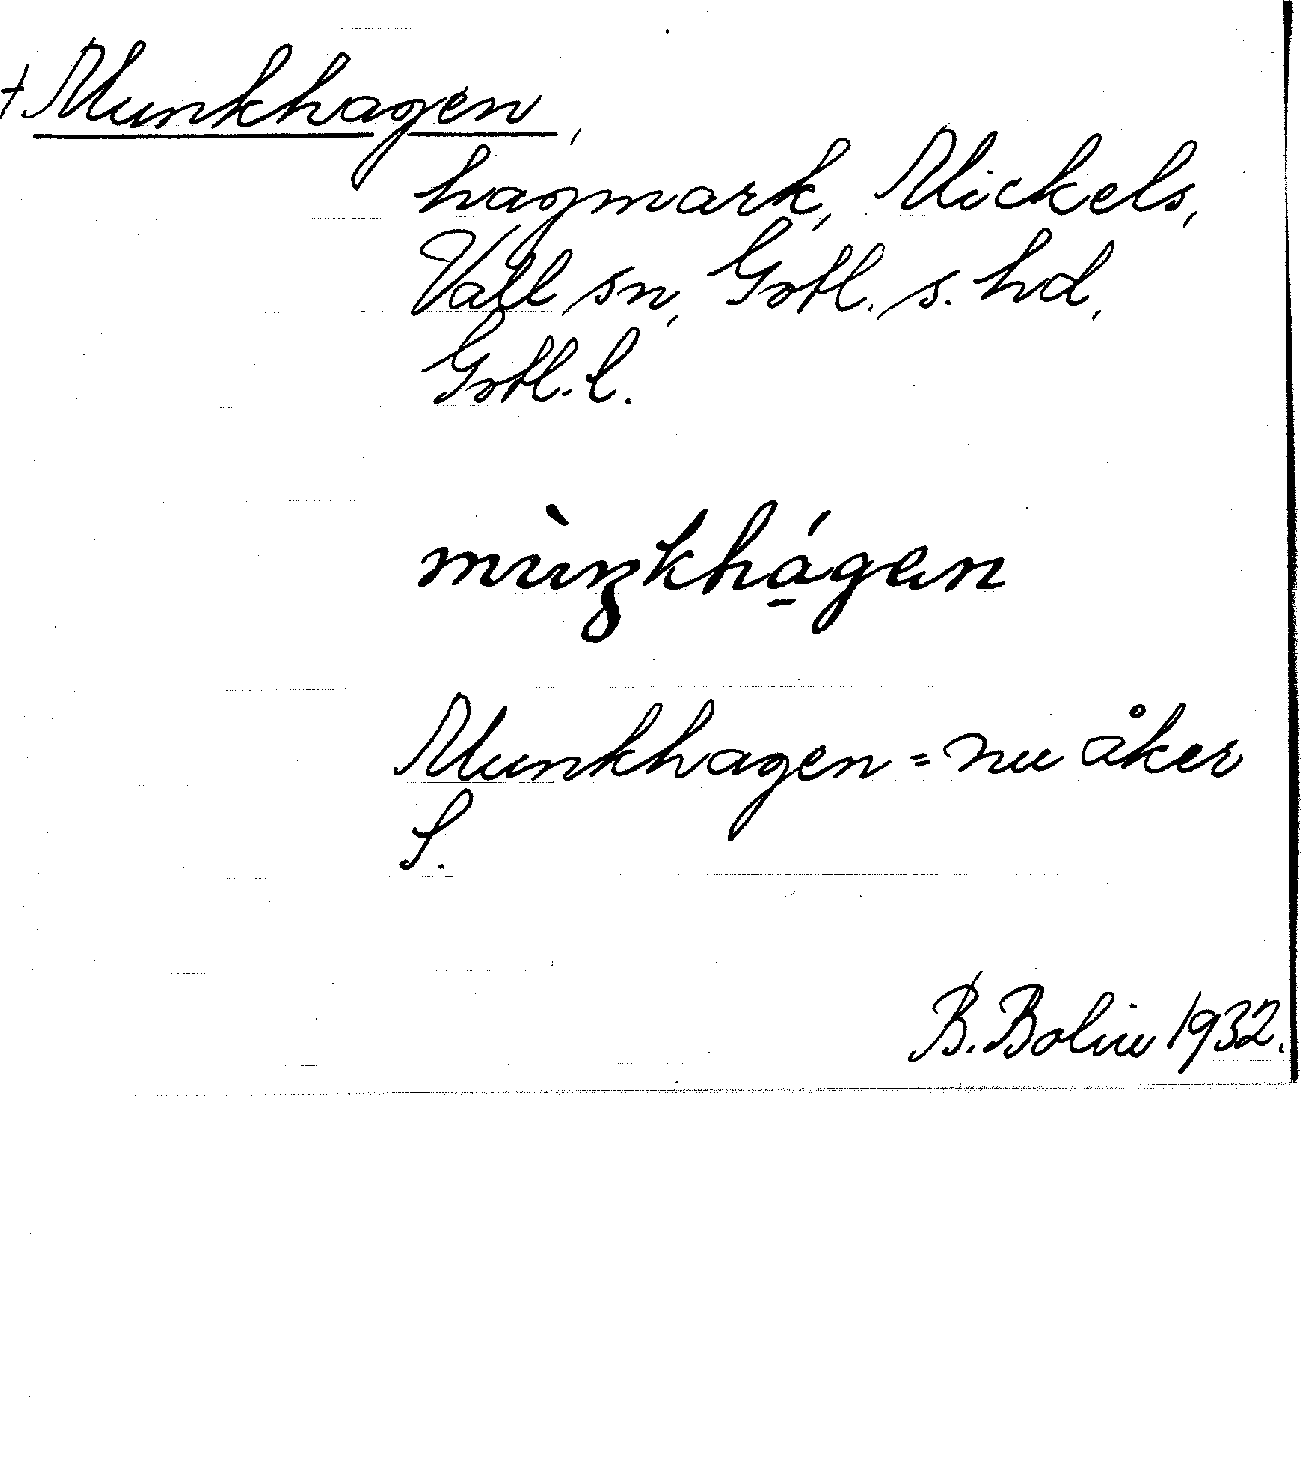 + Munkhagen,
hagmark, Mickels,
Vall sn, Gotl. s. hd,
Gotl. l.
mùŋkhá̱gan
Munkhagen = nu åker
S.
B. Bolin 1932.